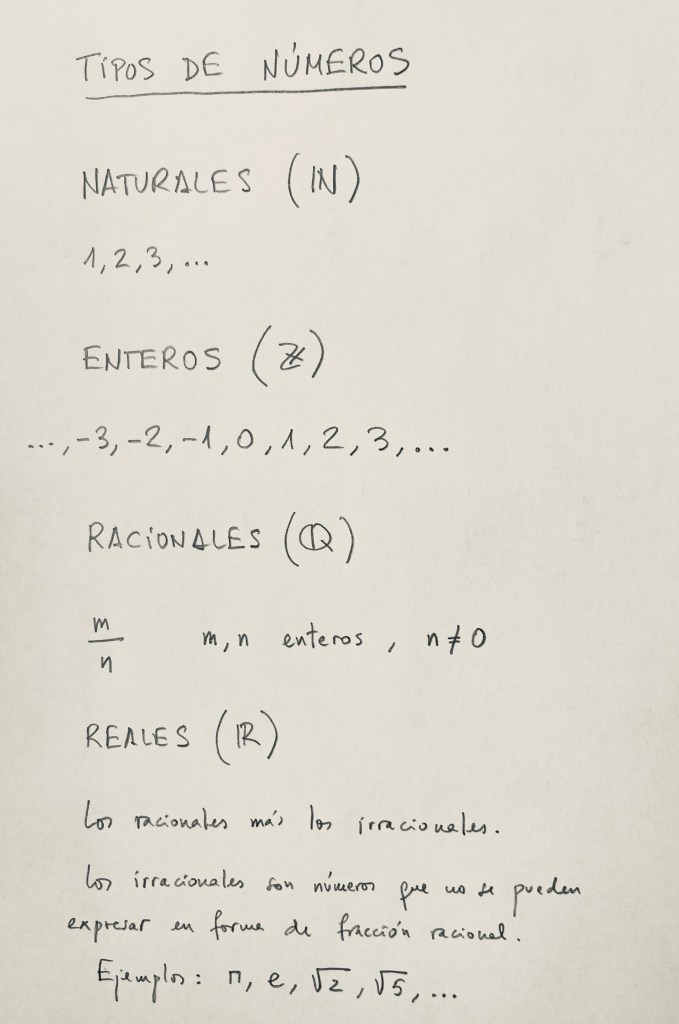 TIPOS DE NÚMEROS
NATURALES (ℕ)
1, 2, 3, ...
ENTEROS (ℤ)
..., -3, -2, -1, 0, 1, 2, 3, ...
RACIONALES (ℚ)
m/n m, n enteros, n ≠ 0
REALES (ℝ)
Los racionales más los irracionales.
Los irracionales son números que no se pueden
expresar en forma de fracción racional.
Ejemplos: π, e, √2, √5, ...